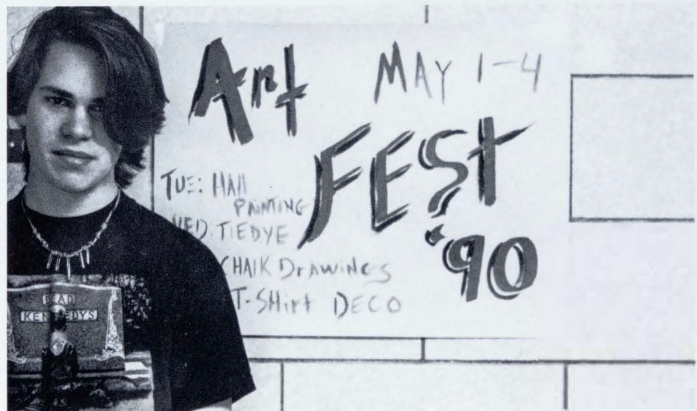 Art MAY 1-4
FESt
'90
TUE: HAll
PAINTING
WED: TIEDYE
CHAlK DrAWiNGS
T-SHirt DECO
DEAD
KENNEDYS